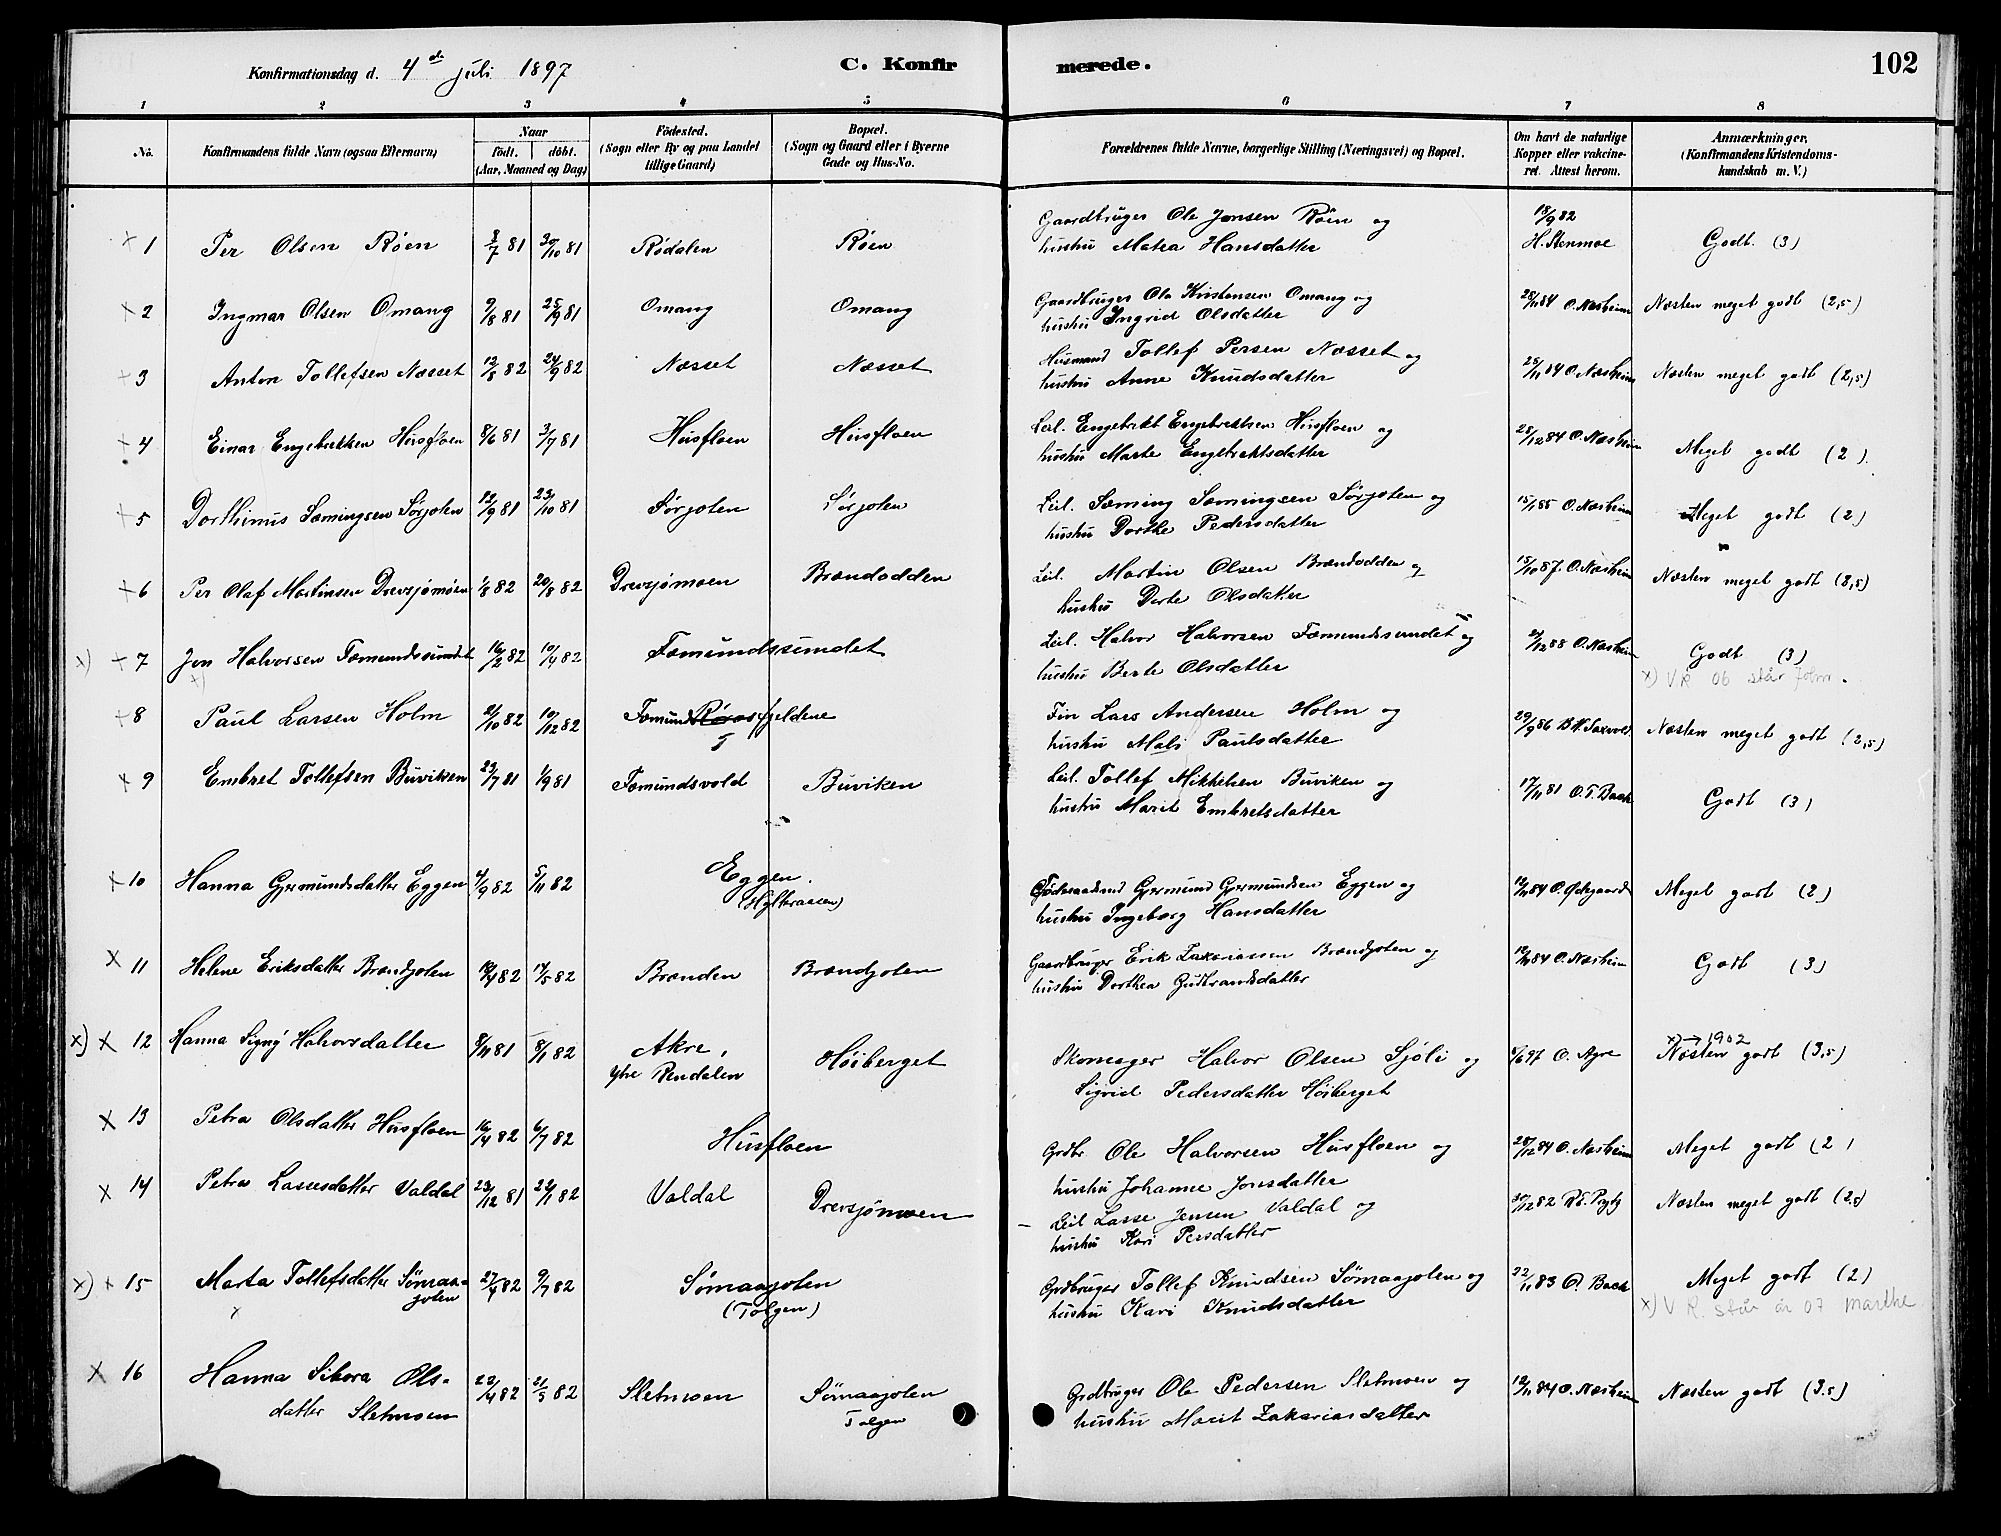 Konfirmationsdag d. 4de juli 1897 C. Konfirmerede. 102
1 2 3 4 5 6 7 8
No. Konfirmandens fulde Navn (ogsaa Efternavn) Naar født. døbt. (Aar, Maaned og Dag) Fødested. (Sogn eller By og paa Landet tillige Gaard) Bopæl. (Sogn og Gaard eller i Byerne Gade og Hus-No. Forældrenes fulde Navne, borgerlige Stilling (Næringsvei) og Bopæl. Om havt de naturlige Kopper eller vakcineret. Attest herom. Anmærkninger, (Konfirmandens Kristendomskundskab m. V.)
x 1 Per Olsen Røen 8/7 81 30/10 81 Rødalen Røen Gaardbruger Ole Jonsen Røen og
hustru Matea Hansdatter 18/9 82 H. Stenmoe Godt. (3)
x 2 Ingmar Olsen Omang 9/8 81 25/9 81 Omang Omang Gaardbruger Ole Kristensen Omang og
hustru Ingrid Olsdatter O. Næsheim Næsten meget godt (2,5)
x 3 Anton Tollefsen Næsset 12/8 82 24/9 82 Næsset Næsset Husmand Tollef Persen Næsset og
hustru Anne Knudsdatter 25/11 84 O. Næsheim Næsten meget godt (2,5)
x 4 Einar Engebrektsen Husfloen 8/6 81 3/7 81 Husfloen Husfloen Leil. Engebrekt Engebrektsen Husfloen og
hustru Marte Engebrektsdatter 28/12 84 O. Næsheim Meget godt (2)
x 5 Dorthinus Sæmingsen Sørjoten 12/9 81 23/10 81 Sørjoten Sørjoten Leil. Sæming Sæmingsen Sørjoten og
hustru Dorthe Pedersdatter 15/1 85 O. Næsheim Meget godt (2)
x 6 Per Olaf Martinsen Drevsjømoen 1/8 82 20/8 82 Drevsjømoen Brændodden Leil. Martin Olsen Brændodden og
hustru Dorte Olsdatter 15/10 87. O. Næsheim Næsten meget godt (2,5)
x) x 7 Jon Halvorsen Fæmundssundet 16/2 82 10/4 82 Fæmundssundet Leil. Halvor Halvorsen Fæmundssundet og
hustru Berte Olsdatter O. Næsheim Godt (3)
x) VR 06 står
x 8 Paul Larsen Holm 21/10 82 10/12 82 Fæmundsfjeldene Fin Lars Andersen Holm og
hustru Mali Paulsdatter 29/9 86 Næsten meget godt (2,5)
x 9 Embret Tollefsen Buviken 23/7 81 1/9 81 Fæmundsvold Buviken Leil. Tollef Mikkelsen Buviken og
hustru Marit Embretsdatter 17/11 81 O. T. Back Godt (3)
x 10 Hanna Gjermundsdatter Eggen 4/9 82 5/11 82 Eggen.
(Hylleraasen) Føderaadsmd Gjermund Gjermundsen Eggen og
hustru Ingeborg Hansdatter O. Ødegaard Meget godt (2)
x 11 Helene Eriksdatter Brændjoten 17/5 82 Brænden Brændjoten Gaardbruger Erik Zakariassen Brændjoten og
hustru Dorthea Gudbrandsdatter O. Næsheim Godt (3)
x) x 12 Hanna Signy Halvorsdatter 8/11 81 8/1 82 Akre,
Ytre Rendalen Høiberget Skomager Halvor Olsen Sjøli og
Sigrid Pedersdatter Høiberget O. Agre x) → 1902
Næsten godt (3,5)
x 13 Petra Olsdatter Husfloen 16/4 82 6/7 82 Husfloen Grdbr Ole Halvorsen Husfloen og
hustru Johanne Jonsdatter 28/12 84 O. Næsheim Meget godt (2)
x 14 Petra Lassesdatter Valdal 23/12 81 22/1 82 Valdal Drevsjømoen Leil Lasse Jensen Valdal og
hustru Kari Persdatter 30/12 82 Næsten meget godt (2,5)
x) x 15 Marta Tollefsdatter Sømaajoten 27/4 82 9/7 82 Sømaajoten
(Tolgen) Grdbruger Tollef Knudsen Sømaajoten og
hustru Kari Knudsdatter 22/11 83 O. Back Meget godt (2)
x) V R. står år 07 Marthe
x 16 Hanna Sibora Olsdatter Sletmoen 22/4 82 21/5 82 Sletmoen Sømaajoten
Tolgen Grdbruger Ole Pedersen Sletmoen og
hustru Marit Zakariasdatter 12/11 84 O. Næsheim Næsten godt (3.5)